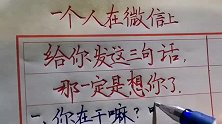 一个人在微信上
给你发这三句话,
那一定是想你了.
一、你在干嘛?